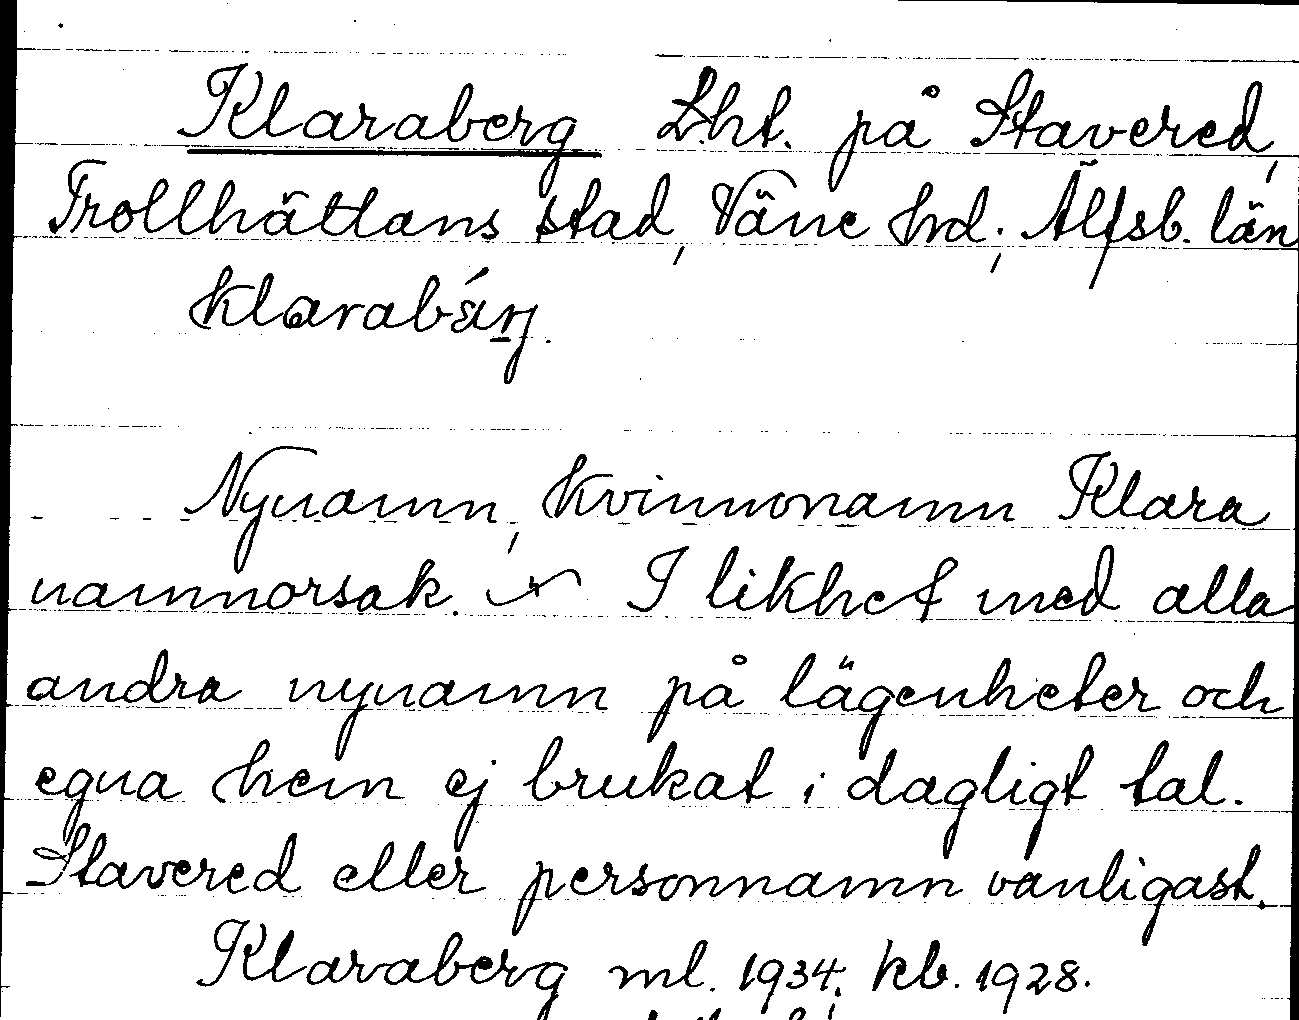 Klaraberg Lht. på Stavered,
Trollhättans stad, Väne hd; Älfsb. län
klarabárj.
Nynamn, kvinnonamn Klara
namnorsak. I likhet med alla
andra nynamn på lägenheter och
egna hem ej brukat i dagligt tal.
Stavered eller personnamn vanligast.
Klaraberg ml. 1934; kb. 1928.